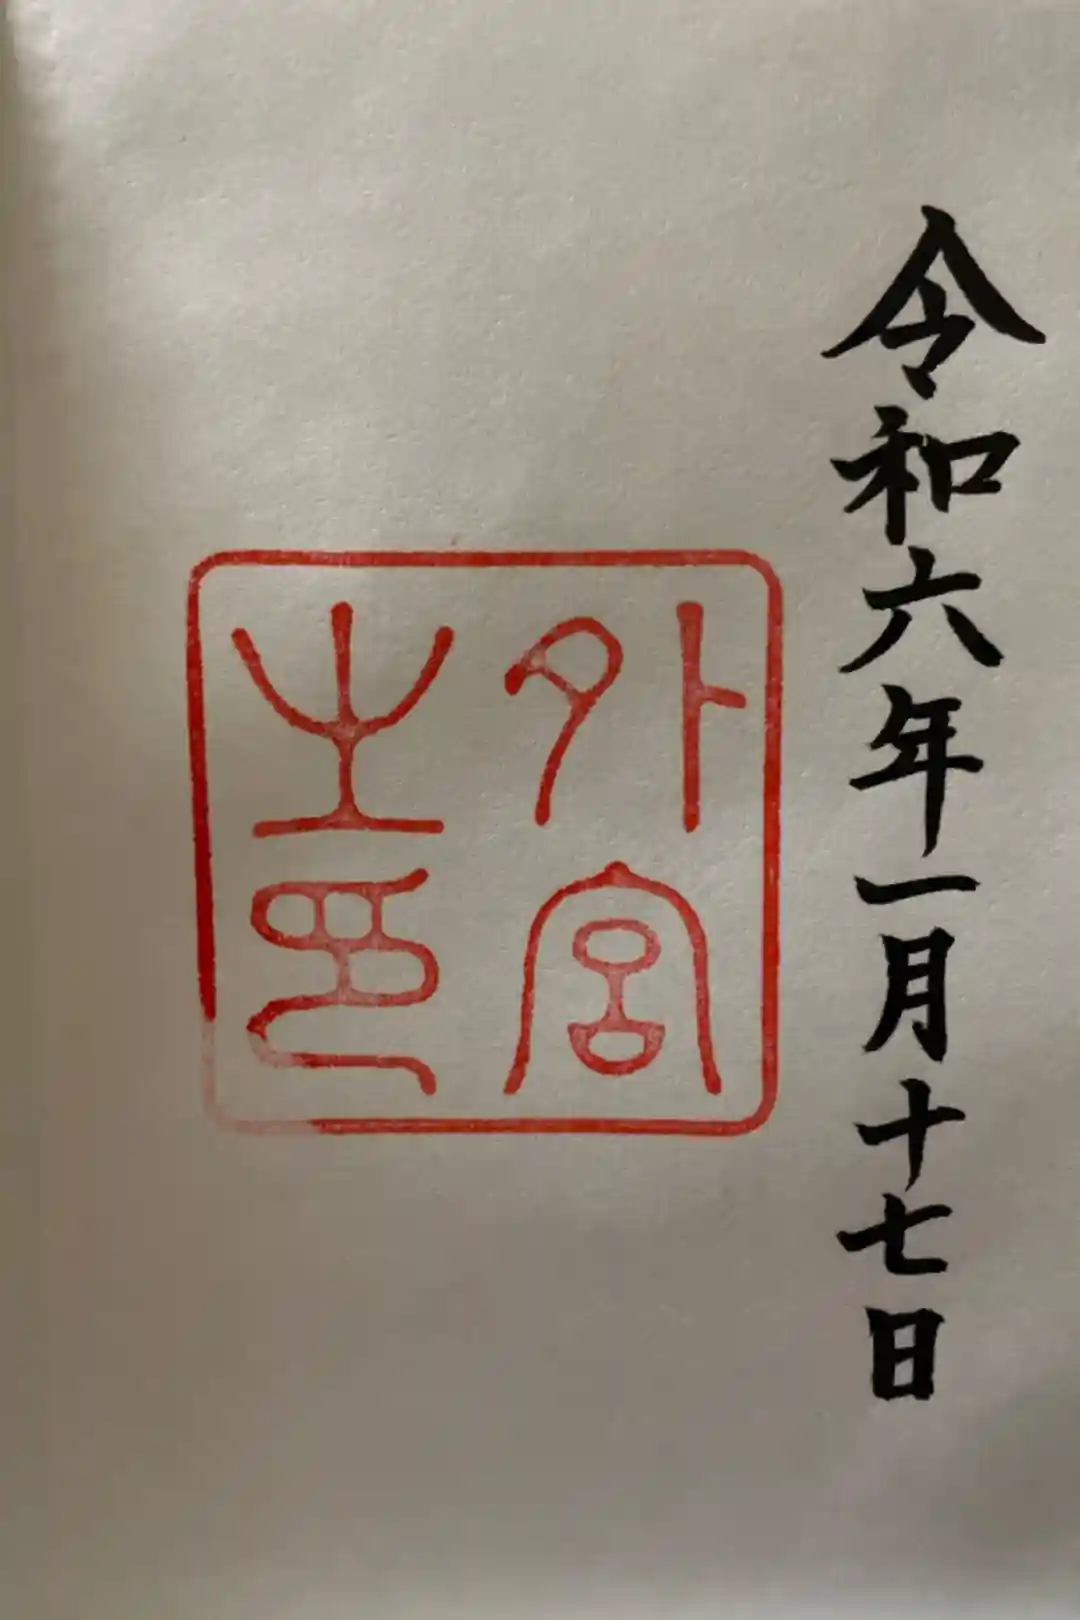 令和六年一月十七日
外宮
之印